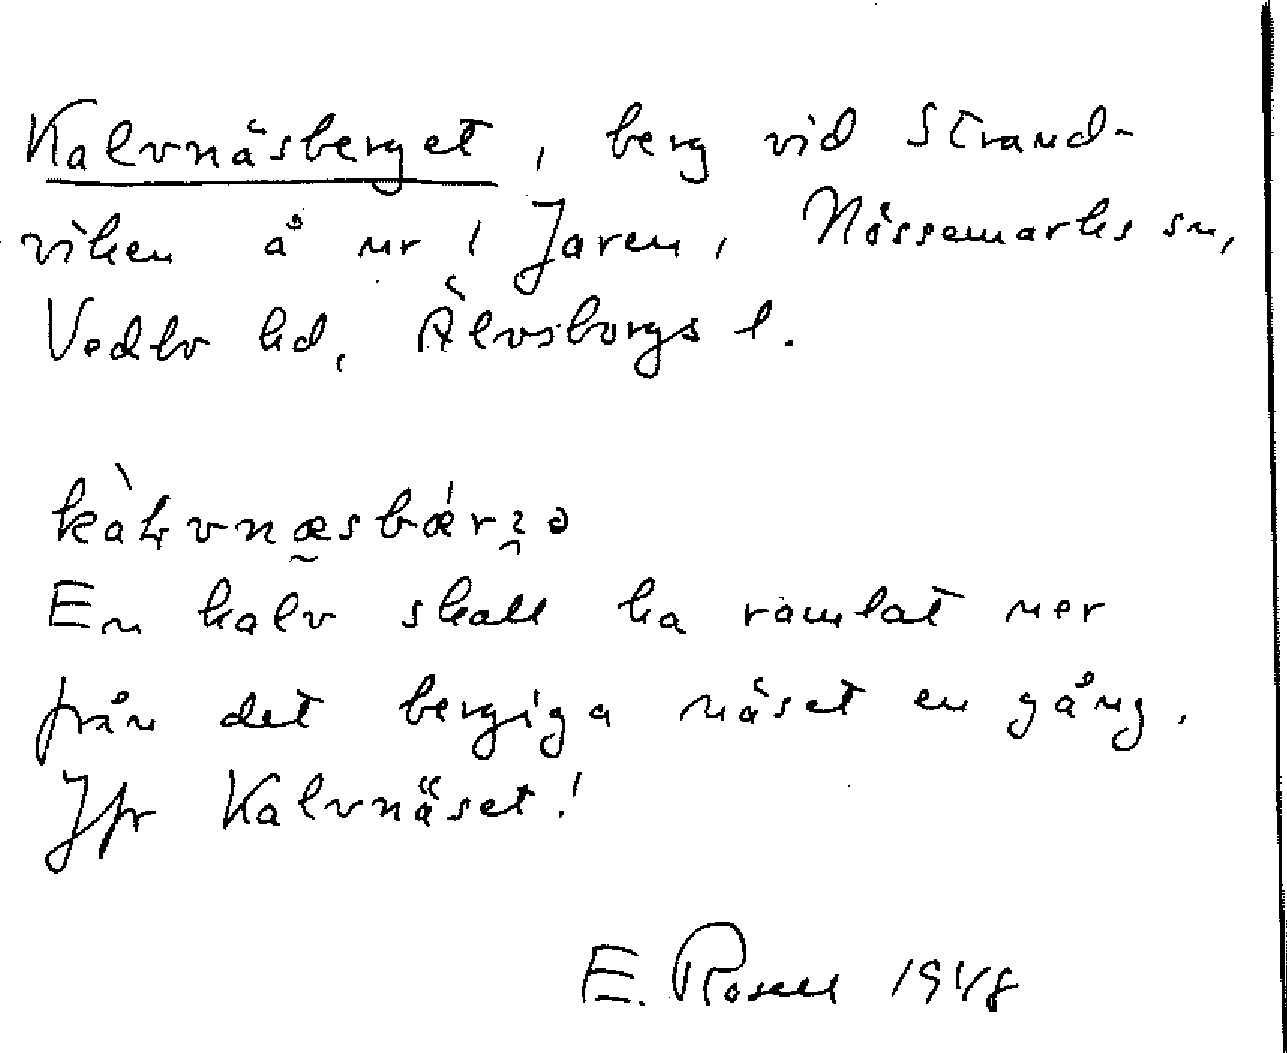 Kalvnäsberget, berg vid Strand-
viken å nr 1 Jaren, Nössemarks sn,
Vedbo hd, Älvsborgs l.
En kalv skall ha ramlat ner
från det bergiga näset en gång.
Jfr Kalvnäset!
E. Rosell 1948